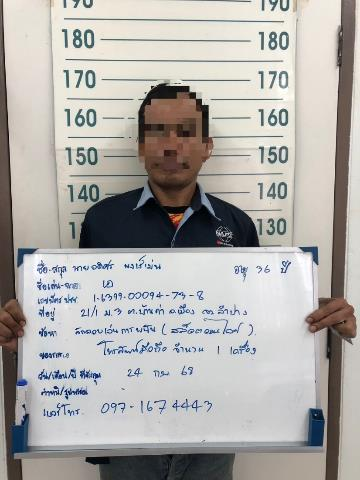 190 190
180 180
170 170
160 160
150 150
140 140
130 130
ชื่อ-สกุล นาย อดิศร อายุ 36 ปี
ชื่อเล่น-ฉายา เอ
เลขบัตร ปชช 1-6399-00094-73-8
ที่อยู่ 21/1 ม.3 ต.บ้านค่า อ.เมือง จ.ลำปาง
ข้อหา ลักลอบเล่นการพนัน (สล็อตออนไลน์)
ของกลาง โทรศัพท์มือถือ จำนวน 1 เครื่อง
วัน/เดือน/ปี ที่จับกุม 24 กพ 68
ตำหนิ/รูปพรรณ
เบอร์โทร 097-1674443